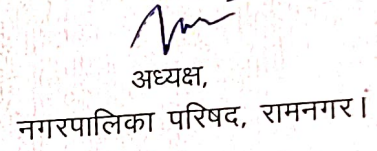 अध्यक्ष,
नगरपालिका परिषद, रामनगर।